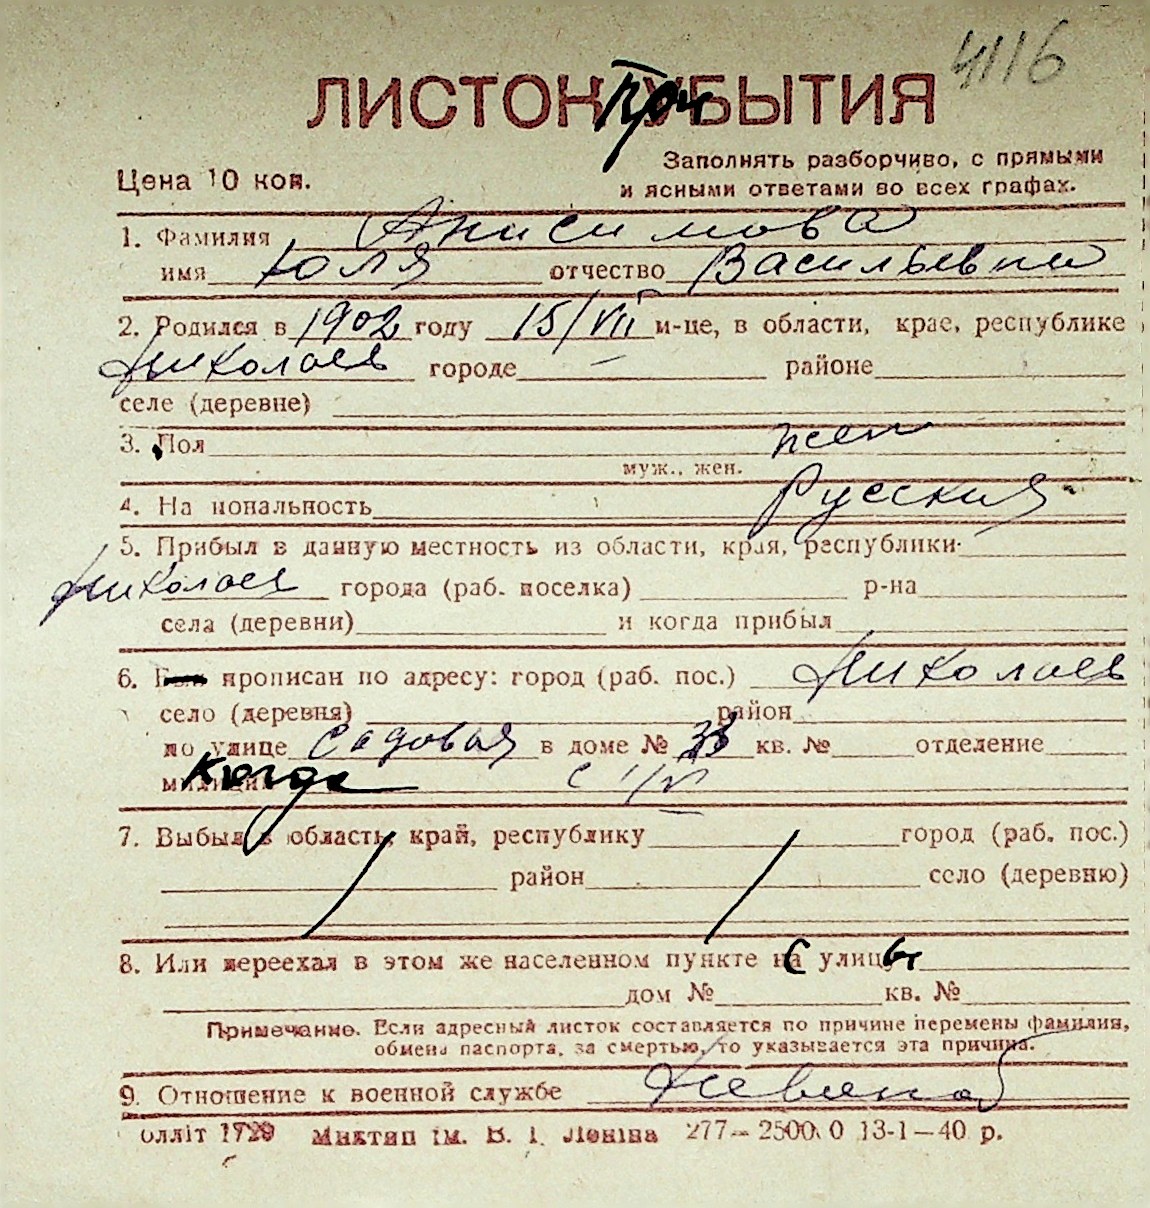 4116
ЛИСТОК При УБЫТИЯ
Цена 10 коп.
Заполнять разборчиво, с прямыми
и ясными ответами во всех графах.
1. Фамилия Анисимова
имя Юля отчество Васильевна
2. Родился в 1902 году 15/VII м-це, в области, крае, республике
Николаев городе — районе
селе (деревне)
3. Пол жен
муж., жен.
4. На иональность Русская
5. Прибыл в данную местность из области, края, республики
Николаев города (раб. поселка) р-на
села (деревни) и когда прибыл
6. прописан по адресу: город (раб. пос.) Николаев
село (деревня) район
по улице Садовая в доме № кв. № отделение
милиции когда с 1/VI
7. Выбыл в область, край, республику город (раб. пос.)
район село (деревню)
8. Или переехал в этом же населенном пункте с улицы
дом № кв. №
Примечание. Если адресный листок составляется по причине перемены фамилия,
обмена паспорта, за смертью, то указывается эта причина.
9. Отношение к военной службе Невоеноб
олліт 1729 Миктип ім. В. І. Леніна 277—2500 0 13-1—40 р.